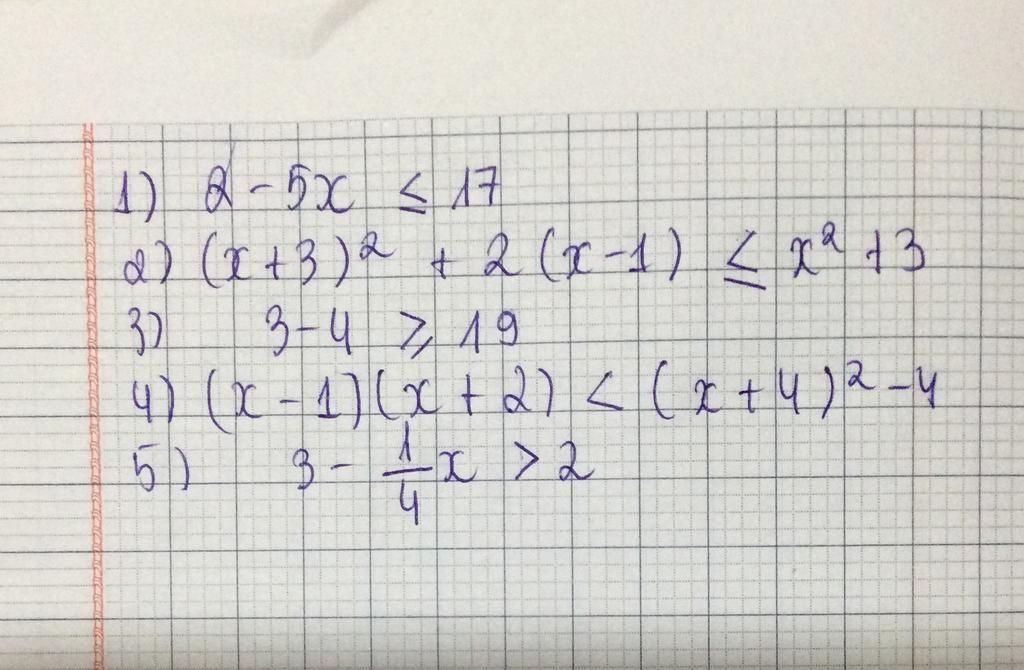 1) 2 - 5x ≤ 17
2) (x+3)² + 2(x-1) ≤ x² + 3
3) 3-4 ≥ 19
4) (x-1)(x+2) < (x+4)² - 4
5) 3 - 1/4 x > 2